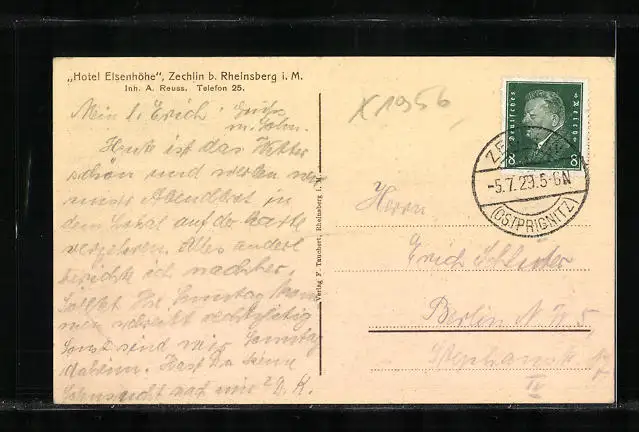 „Hotel Elsenhöhe", Zechlin b. Rheinsberg i. M.
Inh. A. Reuss. Telefon 25.
Mein l. Erich!
Heute ist das Wetter
schön und werden wir
unser Abendbrot in
dem Lokal auf der Karte
verzehren. Alles andere
berichte ich nachher.
Solltet Ihr Sonntag
schreibt rechtzeitig
sonst sind wir Sonntag
daheim. Hast Du keine
Sehnsucht nach mir?
Verlag F. Tauchert, Rheinsberg i. M.
X 1956
Deutsches Reich
8 8
-5.7.29.5-6N
(OSTPRIGNITZ)
Herrn
Erich
Berlin
IV